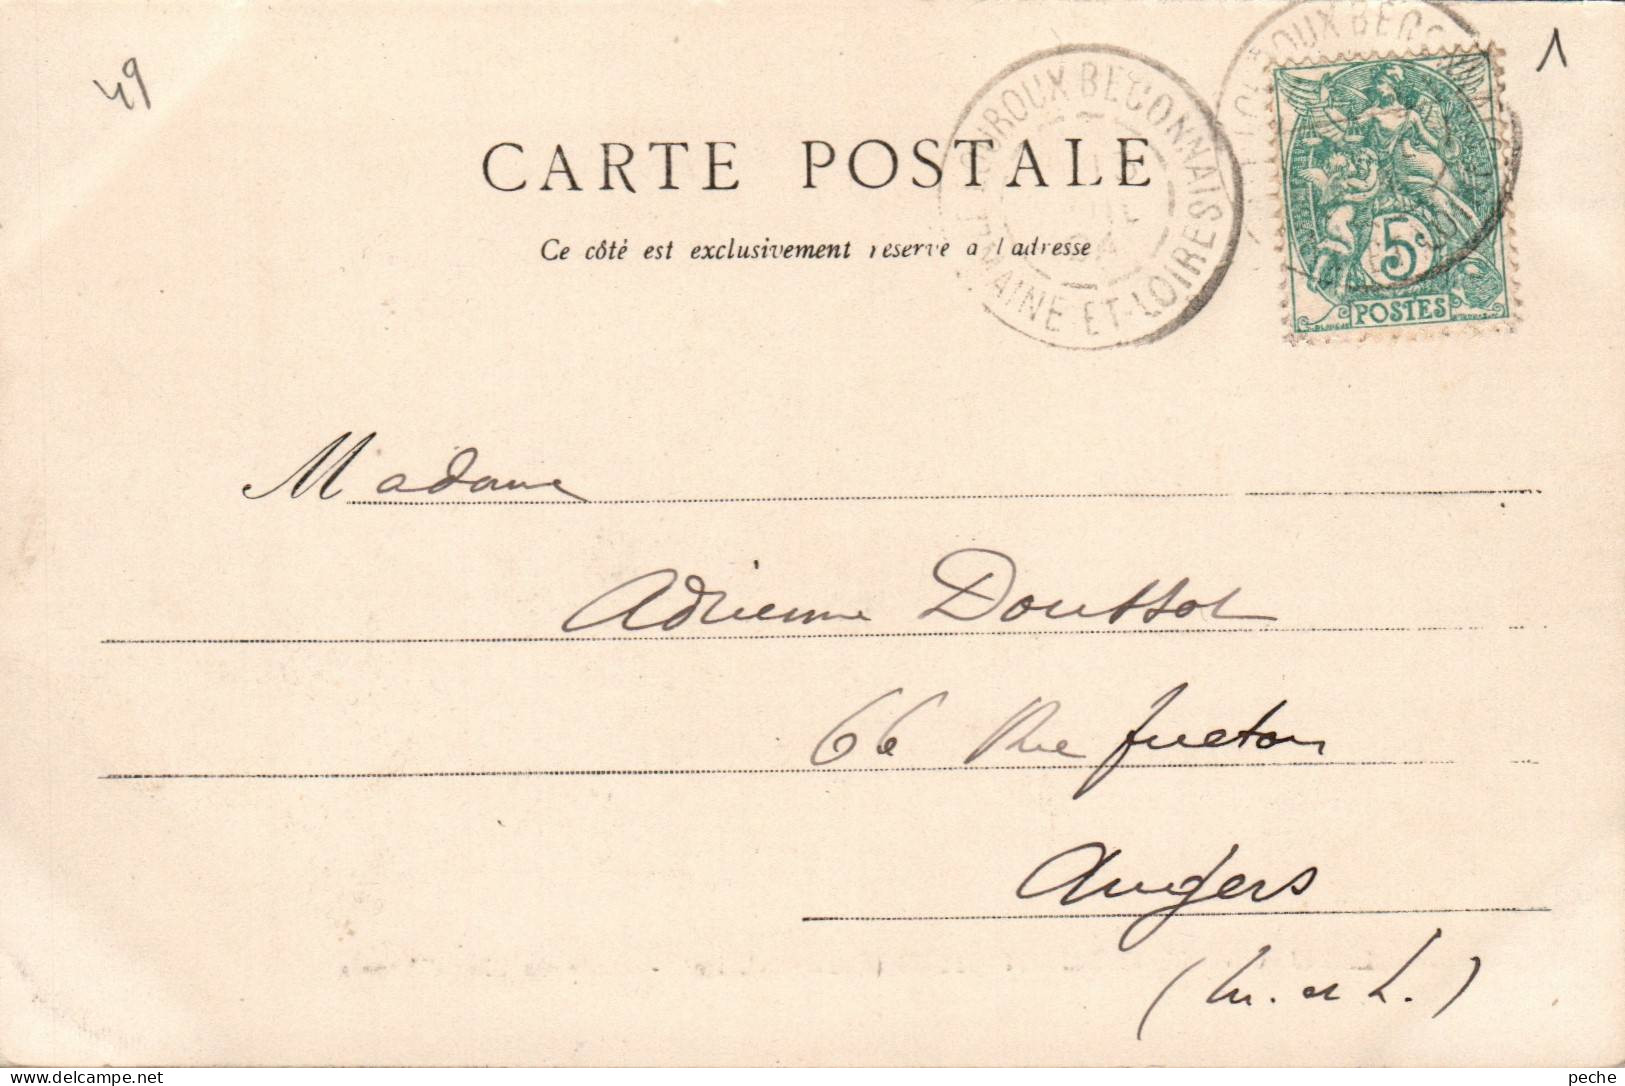 49
1
CARTE POSTALE
Ce côté est exclusivement reservé a l'adresse
LOUROUX BECONNAIS
MAINE-ET-LOIRE
04
5c
POSTES
Madame
Adrienne Doussot
66 Rue
Angers
(M. et L.)
delcampe.net
peche